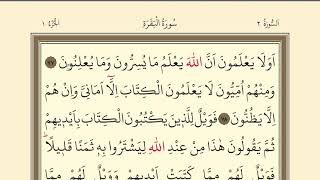 اَلسُّورَةُ ٢ سُورَةُ الْبَقَرَةِ اَلْجُزْءُ ١
اَوَلَا يَعْلَمُونَ اَنَّ اللّٰهَ يَعْلَمُ مَا يُسِرُّونَ وَمَا يُعْلِنُونَ ٧٧
وَمِنْهُمْ اُمِّيُّونَ لَا يَعْلَمُونَ الْكِتَابَ اِلَّٓا اَمَانِيَّ وَاِنْ هُمْ
اِلَّا يَظُنُّونَ ٧٨ فَوَيْلٌ لِلَّذِينَ يَكْتُبُونَ الْكِتَابَ بِاَيْدِيهِمْ
ثُمَّ يَقُولُونَ هٰذَا مِنْ عِنْدِ اللّٰهِ لِيَشْتَرُوا بِهِ ثَمَنًا قَلِيلًاۜ
فَوَيْلٌ لَهُمْ مِمَّا كَتَبَتْ اَيْدِيهِمْ وَوَيْلٌ لَهُمْ مِمَّا